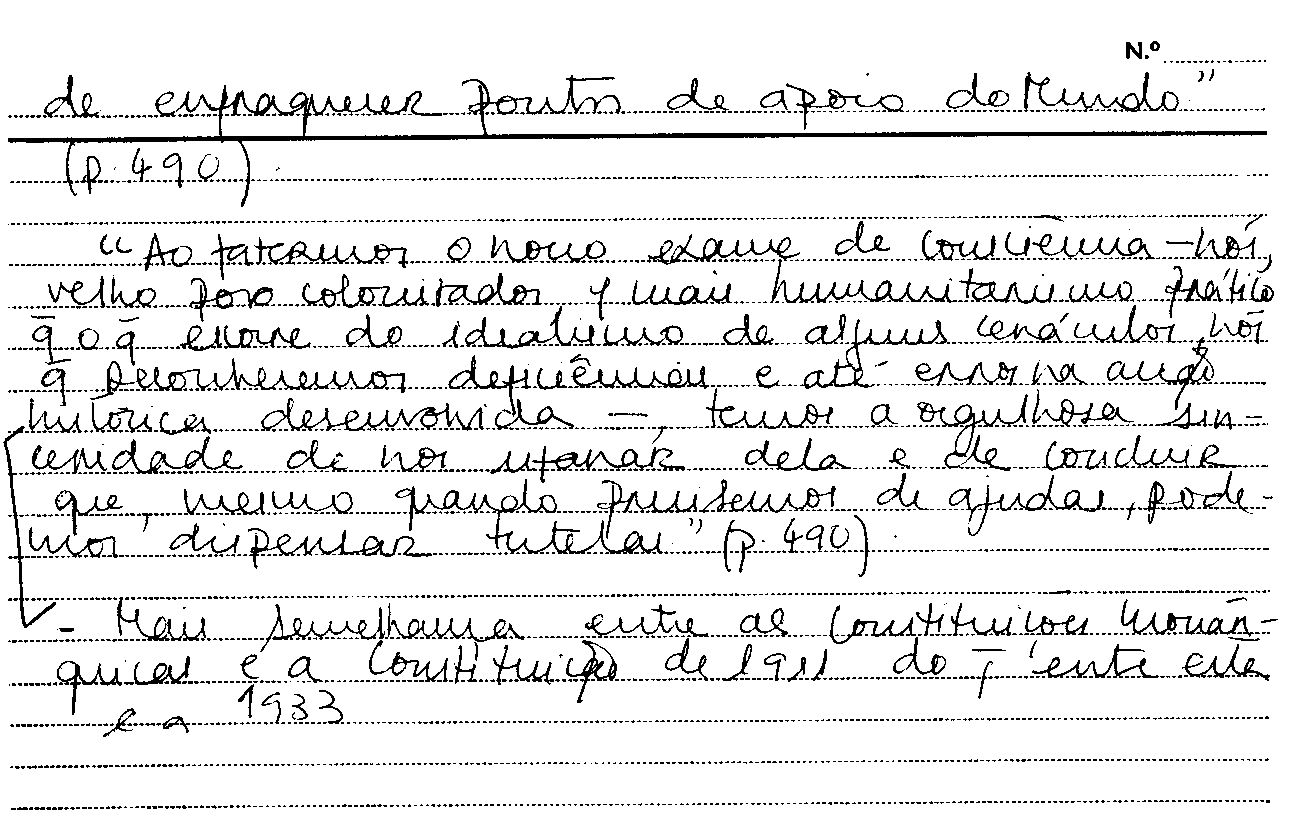 N.º
de enfraquecer pontos de apoio do Mundo"
(p. 490).
"Ao fazermos o nosso exame de consciência – nós,
velho povo colonizador, c/ mais humanitarismo prático
q̄ o q̄ escorre do idealismo de alguns cenáculos, nós
q̄ reconhecemos deficiências e até erros na acção
histórica desenvolvida –, temos a orgulhosa sin-
ceridade de nos ufanar dela e de concluir
que, mesmo quando precisemos de ajudas, pode-
mos dispensar tutelas" (p. 490).
- Mais semelhança entre as Constituições Monár-
quicas e a Constituição de 1911 do q̄ entre esta
e a 1933